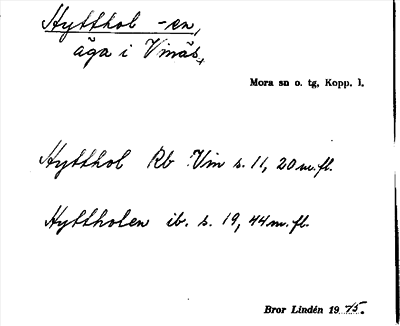 Hytthol -en,
äga i Vinäs,
Mora sn o. tg, Kopp. l.
Hytthol Rb Vin s. 11, 20 m.fl.
Hyttholen ib. s. 19, 44 m.fl.
Bror Lindén 1945.